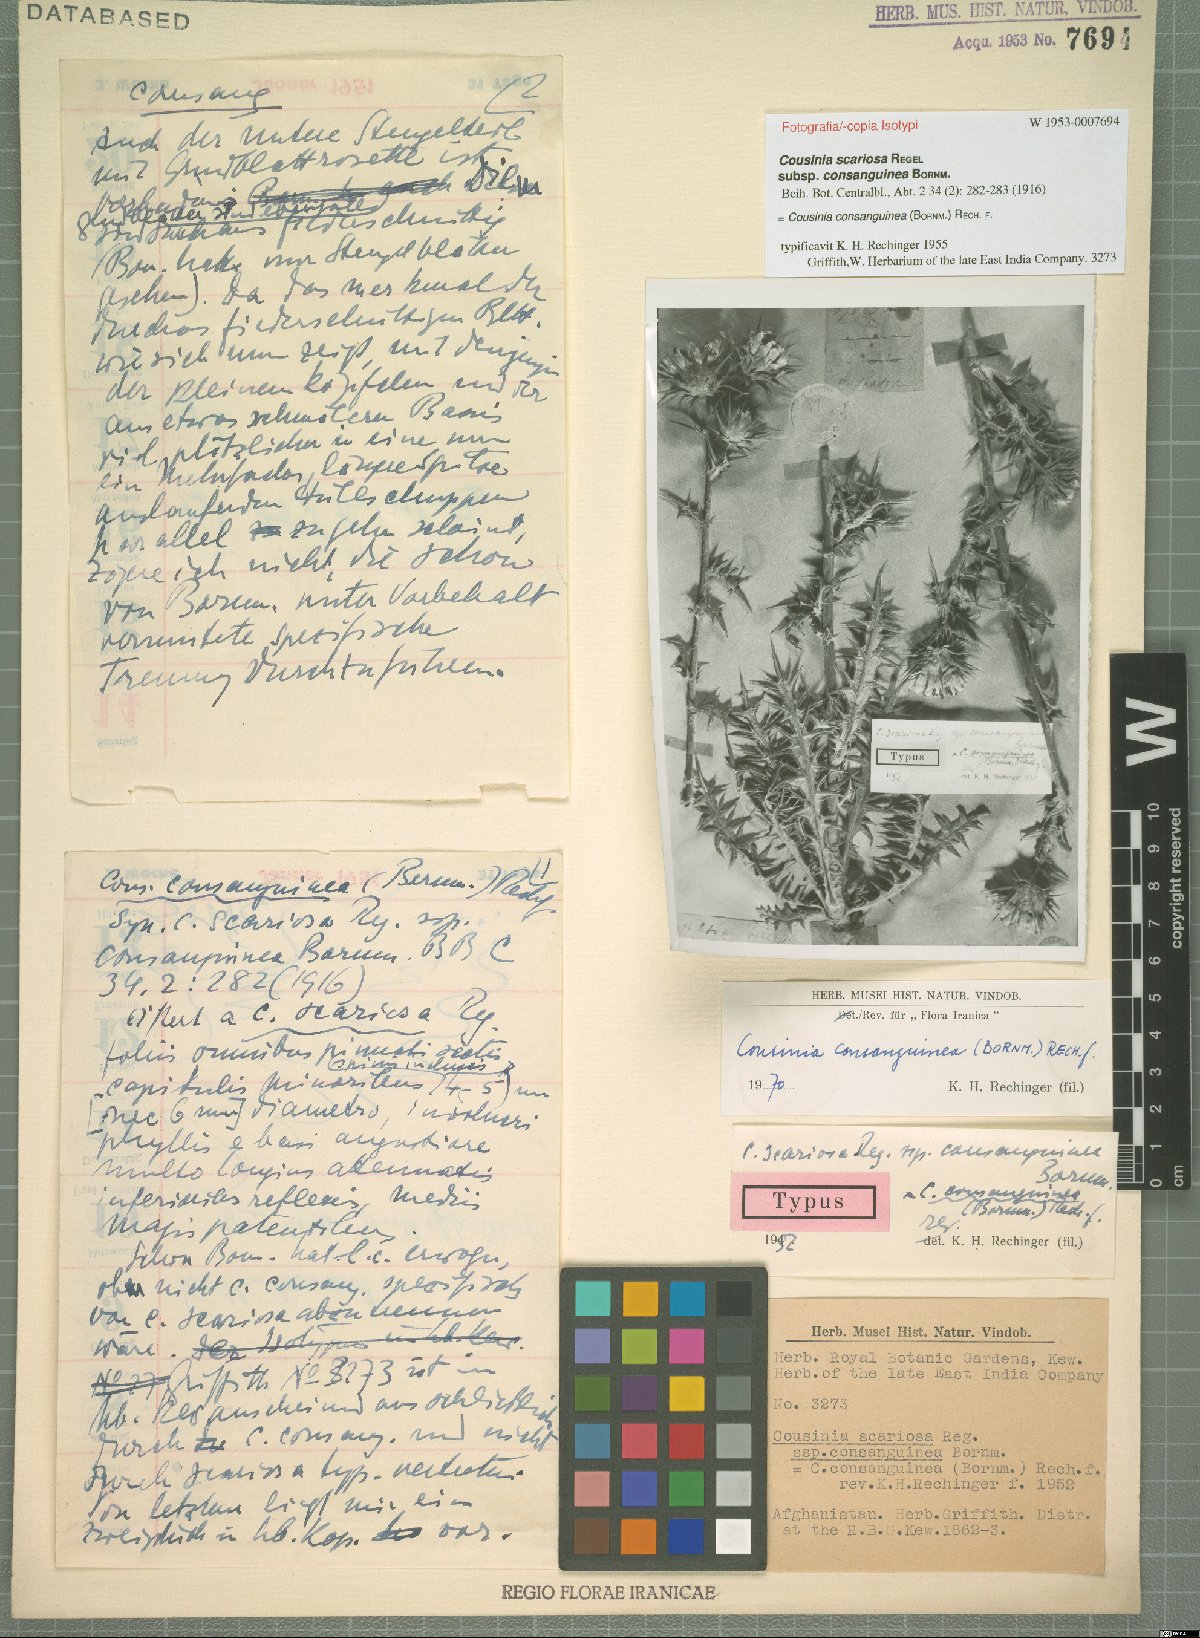 DATABASED
HERB. MUS. HIST. NATUR. VINDOB.
Acqu. 1953 No. 7694
Fotografia/-copia Isotypi W 1953-0007694
Cousinia scariosa REGEL
subsp. consanguinea BORNM.
Beih. Bot. Centralbl., Abt. 2 34 (2): 282-283 (1916)
= Cousinia consanguinea (BORNM.) RECH. F.
typificavit K. H. Rechinger 1955
Griffith,W. Herbarium of the late East India Company. 3273
consang 2
auch der untere Stengelteil
mit Grundblattrosette ist
fiederschnittig
nur Stengelblätter
gesehen). Da das Merkmal der
durchaus fiederschnittigen Blätt.
wie sich nun zeigt, mit denjenigen
der kleinen Köpfchen und der
aus etwas schmälern Basis
viel plötzlicher in eine um
ein Mehrfaches längere Spitze
auslaufenden Hüllschuppen
parallel zu gehen scheint,
zögere ich nicht, die schon
von Bornm. unter Vorbehalt
vermutete spezifische
Trennung durchzuführen.
C. scariosa Reg. ssp. consanguinea
Typus
= C. consanguinea
(Bornm.) Rech. f.
det. K. H. Rechinger (fil.)
Cons. consanguinea (Bornm.) Rech f. 1
Syn. C. scariosa Reg. ssp.
consanguinea Bornm. BBC
34. 2: 282 (1916)
Differt a C. scariosa Reg.
foliis omnibus pinnati sectis
capitulis minoribus (4-5) mm
[nec 6 mm] diametro, involucri
phyllis e basi angustiore
multo longius attenuatis
inferioribus reflexis, mediis
magis patentibus.
Schon Born. hat l.c. erwogen,
ob nicht C. consang. spezifisch
von C. scariosa abzutrennen
wäre.
Griffith No 3273 ist im
hb. Reg anscheinend ausschließlich
durch C. consang. und nicht
durch scariosa typ. vertreten.
Von letzterer liegt mir ein
Zweigstück in hb. Kop. vor.
HERB. MUSEI HIST. NATUR. VINDOB.
Det./Rev. für „ Flora Iranica "
Cousinia consanguinea (BORNM.) RECH. f.
1970 K. H. Rechinger (fil.)
C. scariosa Reg. ssp. consanguinea
Bornm.
Typus
= C. consanguinea
(Bornm.) Rech. f.
rev.
1952 det. K. H. Rechinger (fil.)
Herb. Musei Hist. Natur. Vindob.
Herb. Royal Botanic Gardens, Kew.
Herb.of the late East India Company
No. 3273
Cousinia scariosa Reg.
ssp.consanguinea Bornm.
= C.consanguinea (Bornm.) Rech.f.
rev.K.H.Rechinger f. 1952
Afghanistan. Herb.Griffith. Distr.
at the R.B.G.Kew.1862-3.
W
0 1 2 3 4 5 6 7 8 9 10 cm
copyright reserved
REGIO FLORAE IRANICAE